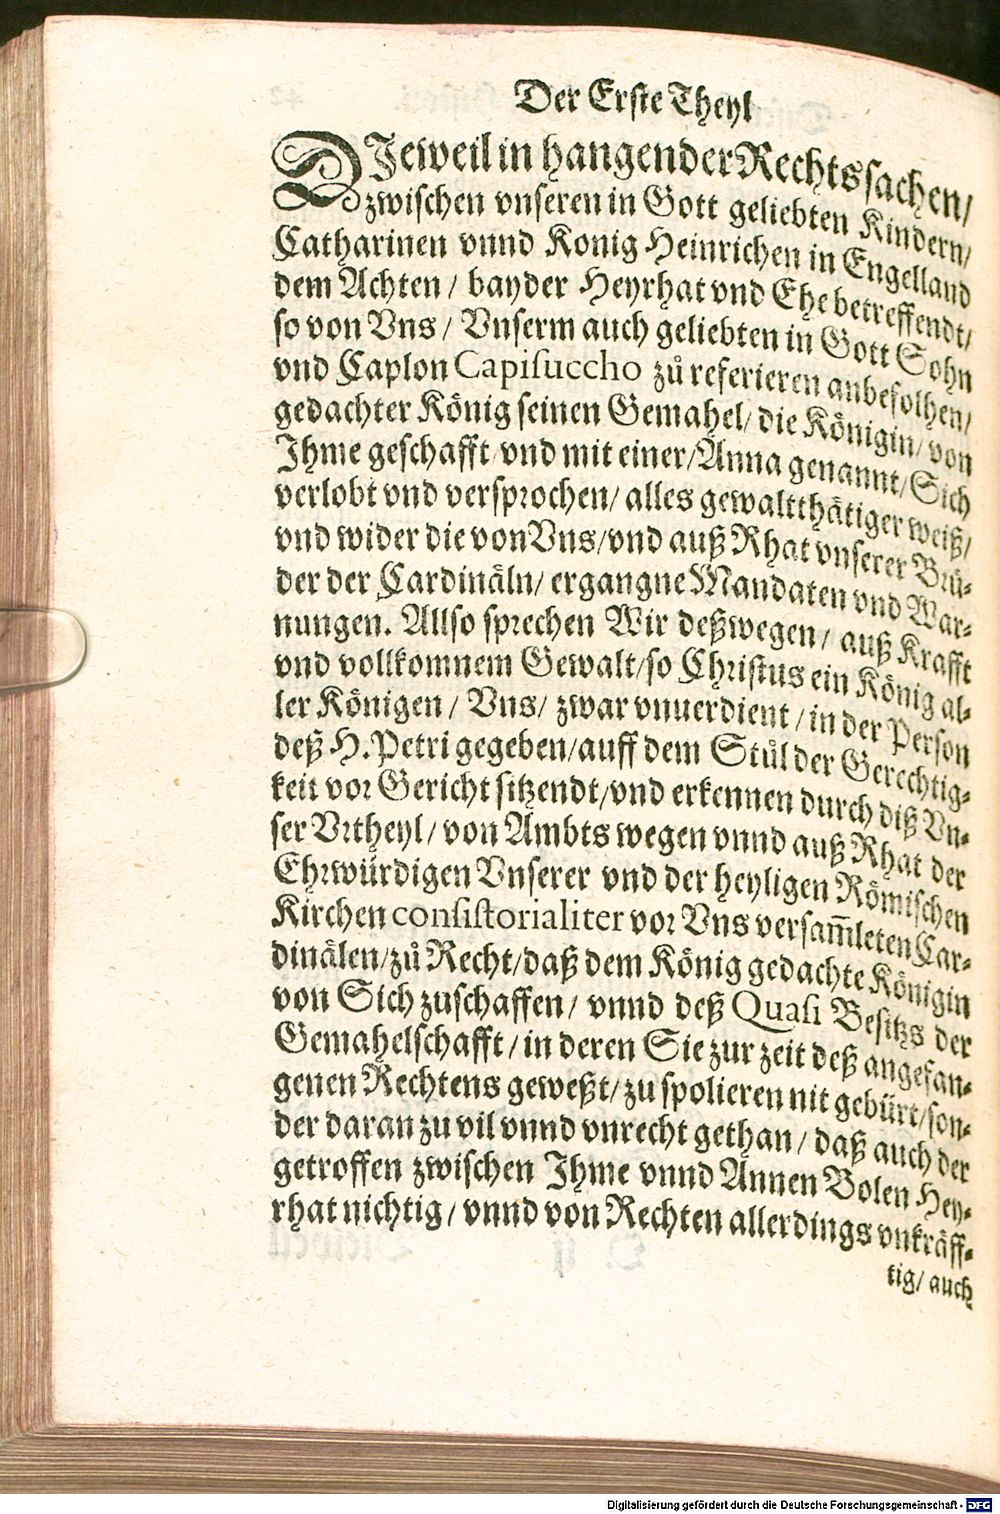 Der Erste Theyl
DJeweil in hangender Rechtssachen/
zwischen vnseren in Gott geliebten Kindern/
Catharinen vnnd Konig Heinrichen in Engelland
dem Achten/ bayder Heyrhat vnd Ehe betreffendt/
so von Vns/ Vnserm auch geliebten in Gott Sohn
vnd Caplon Capisuccho zů referieren anbefolhen/
gedachter König seinen Gemahel/ die Königin/ von
Jhme geschafft/ vnd mit einer/ Anna genannt/ Sich
verlobt vnd versprochen/ alles gewaltthätiger weiß/
vnd wider die von Vns/ vnd auß Rhat vnserer Brü-
der der Cardinäln/ ergangne Mandaten vnd War-
nungen. Allso sprechen Wir deßwegen/ auß Krafft
vnd vollkomnem Gewalt/ so Christus ein König al-
ler Königen/ Vns/ zwar vnuerdient/ in der Person
deß H. Petri gegeben/ auff dem Stůl der Gerechtig-
keit vor Gericht sitzendt/ vnd erkennen durch diß Vn-
ser Vrtheyl/ von Ambts wegen vnnd auß Rhat der
Ehrwürdigen Vnserer vnd der heyligen Römischen
Kirchen consistorialiter vor Vns versam̅leten Car-
dinälen/ zů Recht/ daß dem König gedachte Königin
von Sich zuschaffen/ vnnd deß Quasi Besitzs der
Gemahelschafft/ in deren Sie zur zeit deß angefan-
genen Rechtens geweßt/ zu spolieren nit gebürt/ son-
der daran zu vil vnnd vnrecht gethan/ daß auch der
getroffen zwischen Jhme vnnd Annen Bolen Hey-
rhat nichtig/ vnnd von Rechten allerdings vnkräff-
tig/ auch
Digitalisierung gefördert durch die Deutsche Forschungsgemeinschaft - DFG